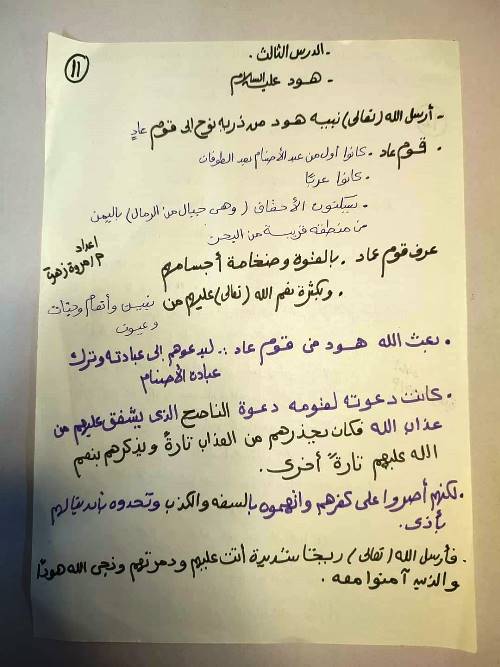 ١١
- الدرس الثالث .
- هود عليه السلام
- أرسل الله (تعالى) نبيه هود من ذرية نوح إلى قوم عادٍ
. قوم عاد . كانوا أول من عبد الأصنام بعد الطوفان
. كانوا عربًا
. يسكنون الأحقاف (وهى جبال من الرمال) باليمن
من منطقة قريبة من اليمن
اعداد
م/مروة زهرة
عرف قوم عاد . بالقوة وضخامة أجسامهم
. وبكثرة نعم الله (تعالى) عليهم من بنيين وأنعام وجنات
وعيون
. بعث الله هود من قوم عاد :. ليدعوهم إلى عبادته وترك
عبادة الأصنام
. كانت دعوته لقومه دعوة الناصح الذى يشفق عليهم من
عذاب الله فكان يحذرهم من العذاب تارةً ويذكرهم بنعم
الله عليهم تارةً أخرى .
. لكنهم أصروا على كفرهم واتهموه بالسفه والكذب وتحدوه بأن ينالهم
بأذى .
. فأرسل الله (تعالى) ريحًا شديدة أتت عليهم ودمرتهم ونجى الله هودًا
والذين آمنوا معه .